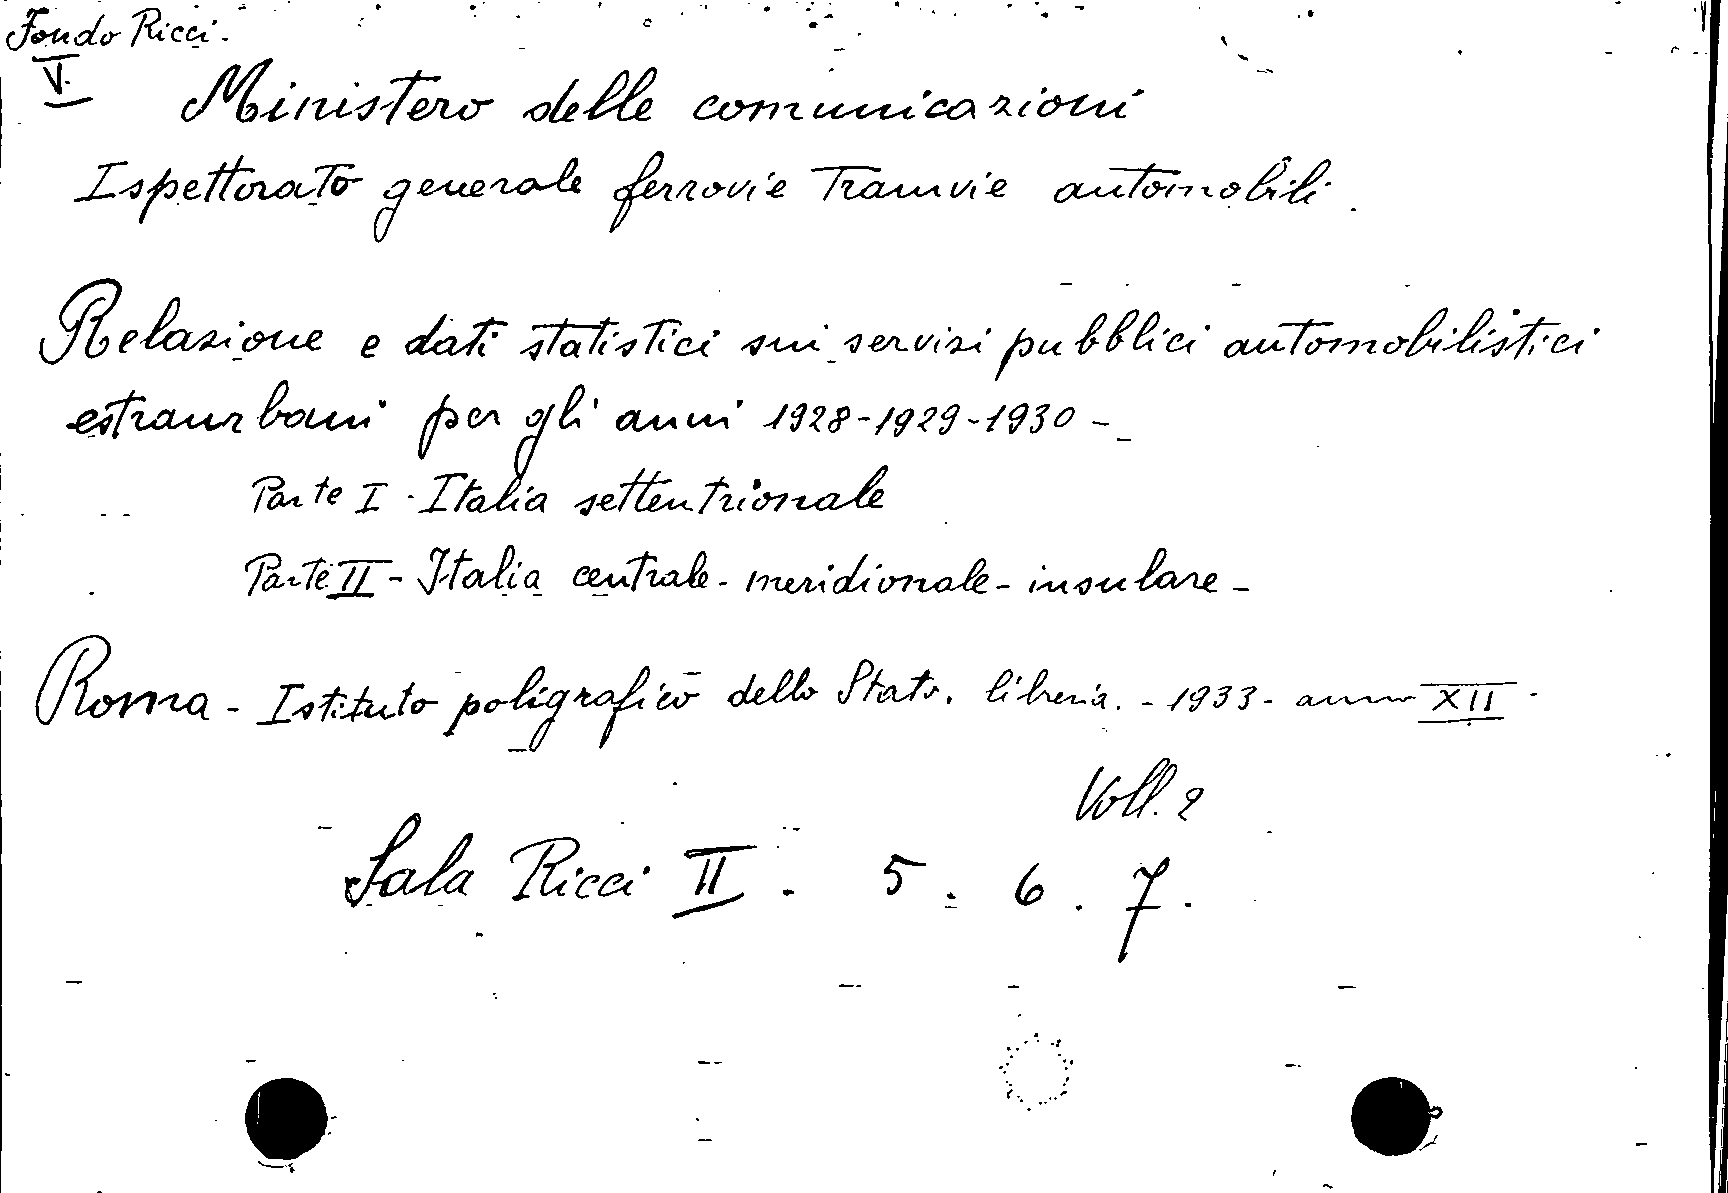 Fondo Ricci.
V.
Ministero delle comunicazioni
Ispettorato generale ferrovie Tramvie automobili.
Relazione e dati statistici sui servizi pubblici automobilistici
estraurbani per gli anni 1928-1929-1930 -
Parte I - Italia settentrionale
Parte II - Italia centrale - meridionale - insulare -
Roma - Istituto poligrafico dello Stato. libreria. - 1933 - anno XII -
Voll. 2
Sala Ricci II. 5. 6. 7.